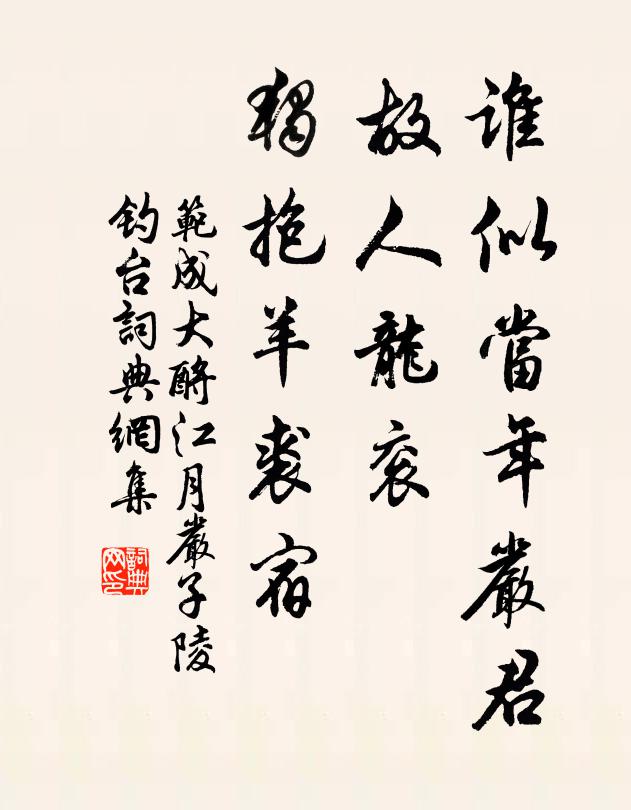 誰似當年嚴君
故人龍衮
獨抱羊裘宿
範成大酹江月嚴子陵
釣台詞典網集
詞典网印